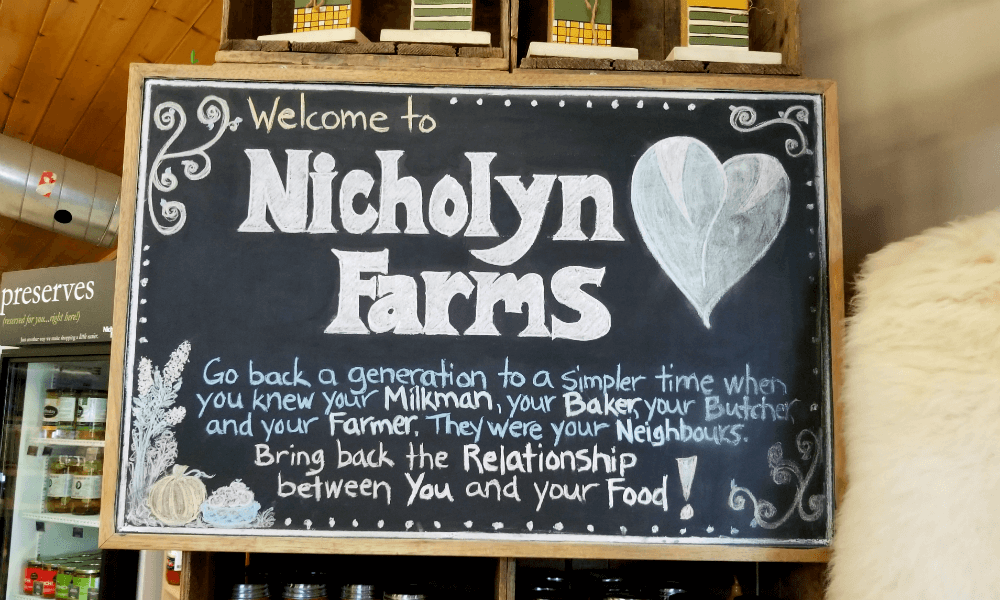 Welcome to
Nicholyn
Farms
Go back a generation to a simpler time when
you knew your Milkman, your Baker, your Butcher
and your Farmer. They were your Neighbours.
Bring back the Relationship
between You and your Food!
preserves
(reserved for you...right here!)